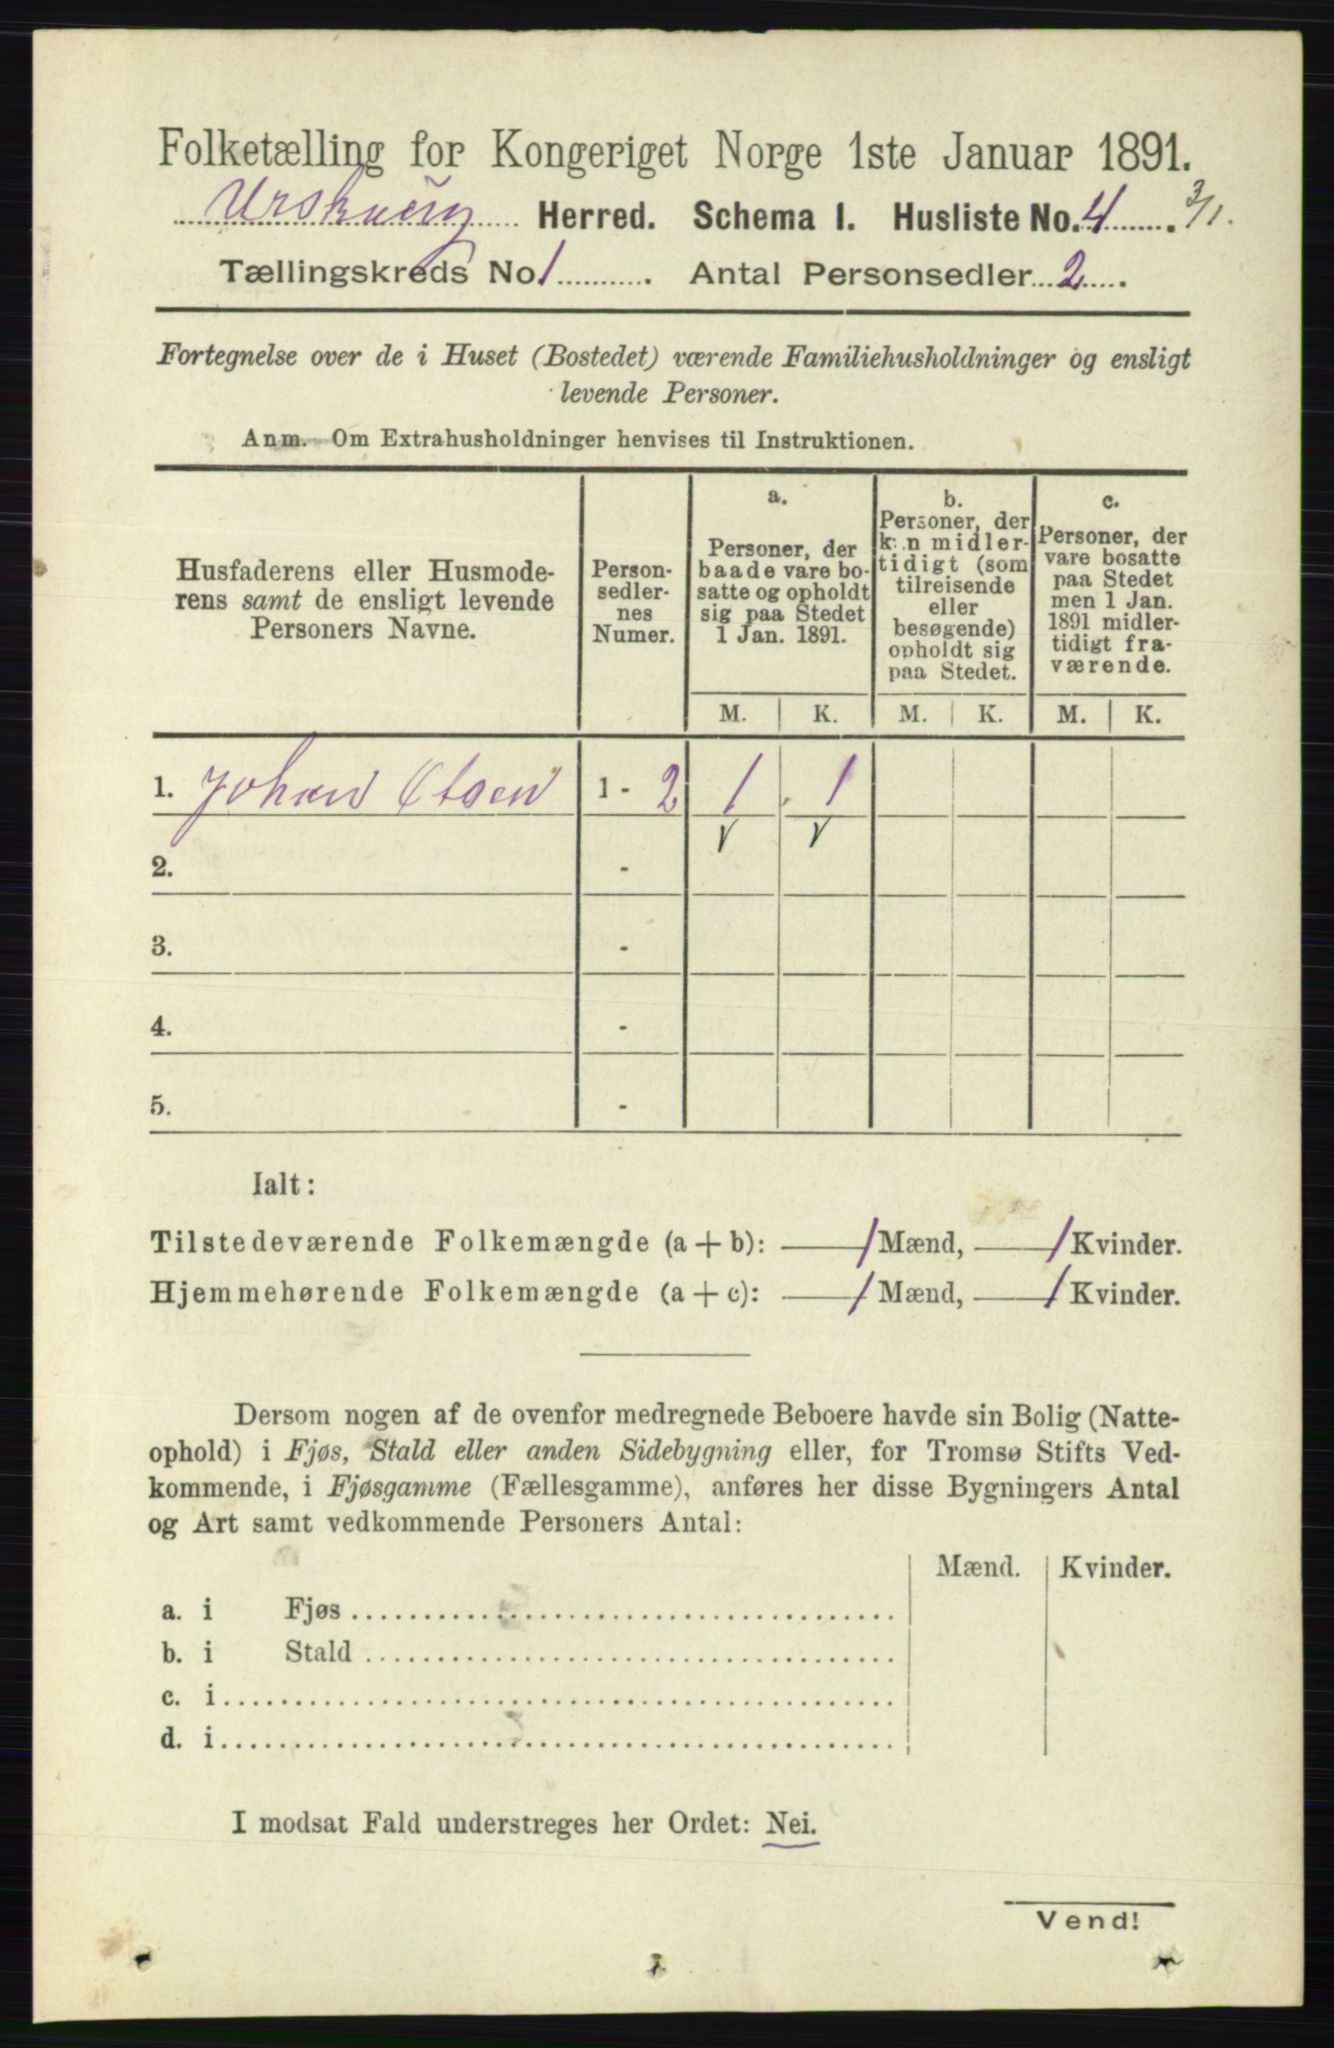 Folketælling for Kongeriget Norge 1ste Januar 1891.
Urskoug Herred. Schema 1. Husliste No. 4. 3/1.
Tællingskreds No 1. Antal Personsedler 2.
Fortegnelse over de i Huset (Bostedet) værende Familiehusholdninger og ensligt
levende Personer.
Anm. Om Extrahusholdninger henvises til Instruktionen.
Husfaderens eller Husmode-
rens samt de ensligt levende
Personers Navne.
Person-
sedler-
nes
Numer.
a.
Personer, der
baade vare bo-
satte og opholdt
sig paa Stedet
1 Jan. 1891.
b.
Personer, der
kun midler-
tidigt (som
tilreisende
eller
besøgende)
opholdt sig
paa Stedet.
c.
Personer, der
vare bosatte
paa Stedet
men 1 Jan.
1891 midler-
tidigt fra-
værende.
M. K. M. K. M. K.
1. Johan Olsen 1 - 2 1 1
v v
2. -
3. -
4. -
5. -
Ialt:
Tilstedeværende Folkemængde (a + b): 1 Mænd, 1 Kvinder.
Hjemmehørende Folkemængde (a + c): 1 Mænd, 1 Kvinder.
Dersom nogen af de ovenfor medregnede Beboere havde sin Bolig (Natte-
ophold) i Fjøs, Stald eller anden Sidebygning eller, for Tromsø Stifts Ved-
kommende, i Fjøsgamme (Fællesgamme), anføres her disse Bygningers Antal
og Art samt vedkommende Personers Antal:
Mænd. Kvinder.
a. i Fjøs
b. i Stald
c. i
d. i
I modsat Fald understreges her Ordet: Nei.
Vend!